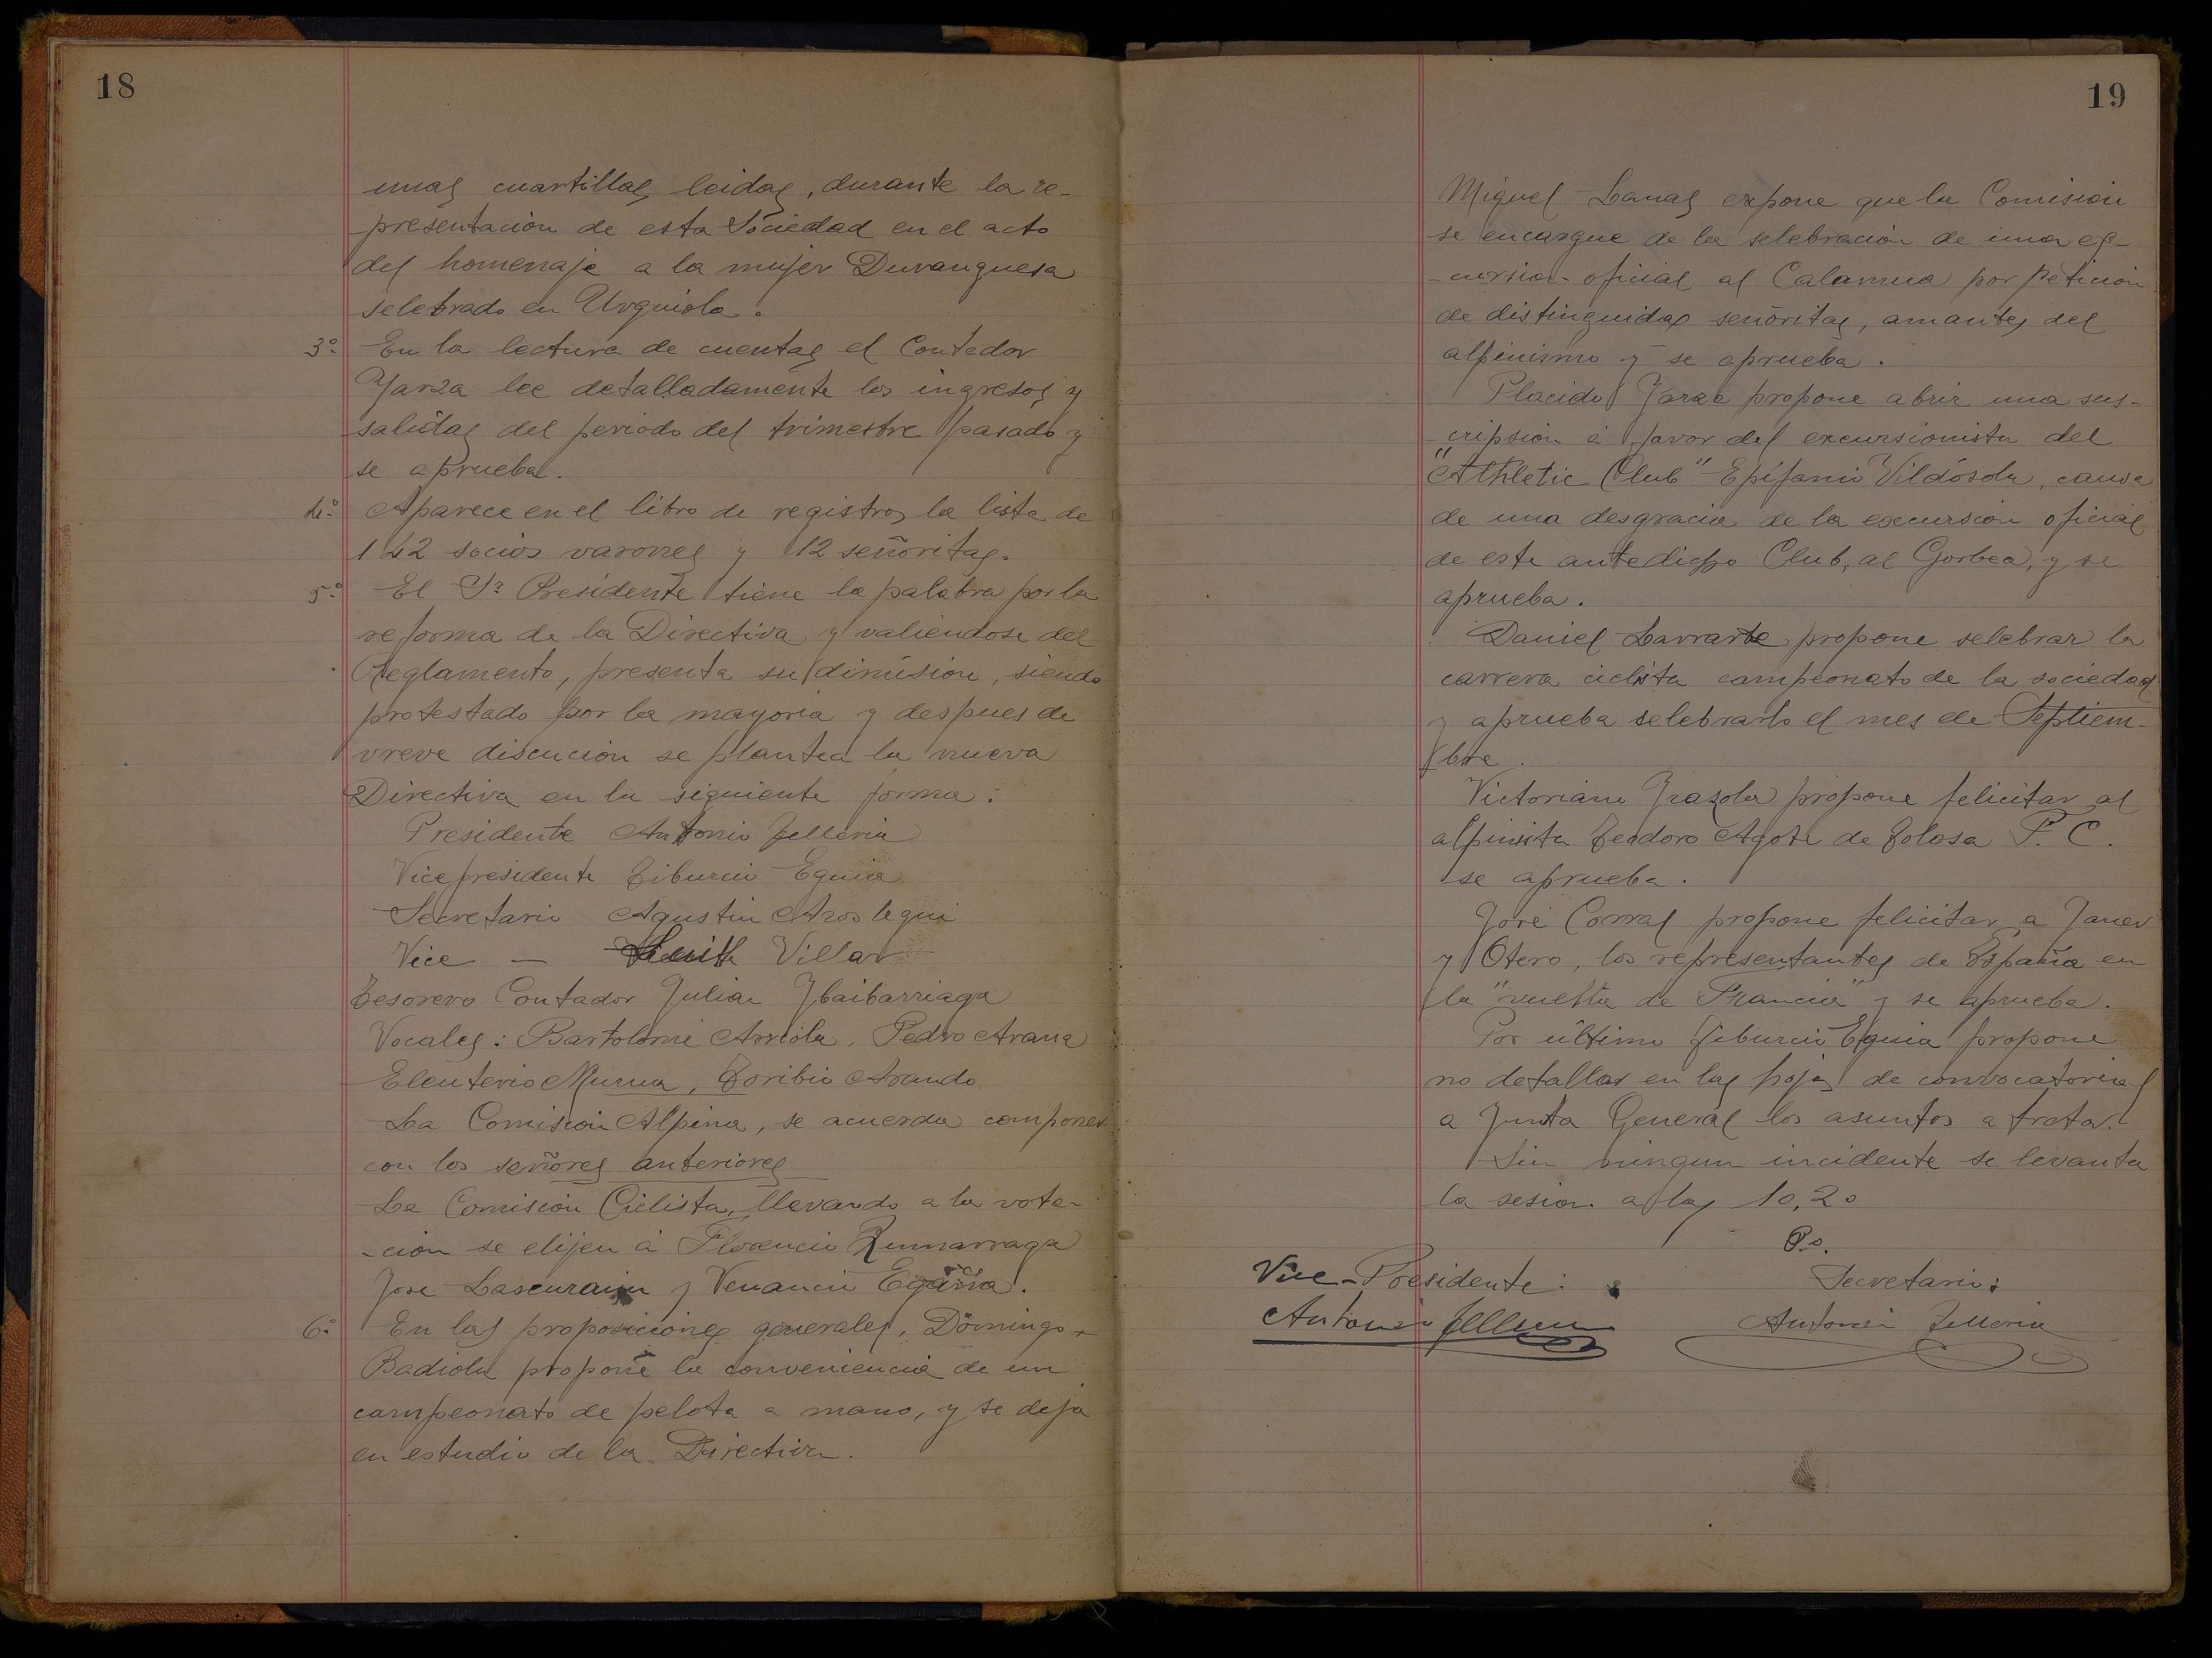 18
unas cuartillas leidas, durante la re-
presentación de esta Sociedad en el acto
del homenaje a la mujer Duranguesa
selebrado en Urquiola.
3º- En la lectura de cuentas el Contador
Yarza lee detalladamente los ingresos y
salidas del periodo del trimestre pasado y
se aprueba.
4º- Aparece en el libro de registros la lista de
142 socios varones y 12 señoritas.
5º- El Sr Presidente tiene la palabra por la
reforma de la Directiva y valiendose del
Reglamento, presenta su dimision, siendo
protestado por la mayoria y despues de
vreve discucion se plantea la nueva
Directiva en la siguiente forma:
Presidente Antonio Telleria
Vicepresidente Tiburcio Eguia
Secretario Agustin Arostegui
Vice - Villar
Tesorero Contador Julian Ybaibarriaga
Vocales: Bartolomé Arriola, Pedro Arana
Eleuterio Murua, Toribio Arando
La Comision Alpina, se acuerda componer
con los señores anteriores
La Comisión Ciclista, llevando a la vota-
-ción se elijen á Florencio Zumarraga
Jose Lascurain y Venancio Egaña.
6º- En las proposiciones generales, Domingo
Badiola propone la conveniencia de un
campeonato de pelota a mano, y se deja
en estudio de la Directiva.
19
Miguel Lanas expone que la Comision
se encargue de la selebración de una es-
-cursion oficial al Calamua por peticion
de distinguidas señoritas, amantes del
alpinismo y se aprueba.
Placido Yarza propone abrir una sus-
-cripsion á favor del excursionista del
"Athletic Club" Epifanio Vildósola, causa
de una desgracia de la excursion oficial
de este antedicho Club, al Gorbea, y se
aprueba.
Daniel Larrarte propone selebrar la
carrera ciclista campeonato de la sociedad
y aprueba selebrarlo el mes de Septiem-
bre.
Victoriano Yrazola propone felicitar al
alpinista Teodoro Agote de Tolosa F. C.
se aprueba.
José Corral propone felicitar a Janer
y Otero, los representantes de España en
la "vuelta de Francia" y se aprueba.
Por último Tiburcio Eguia propone
no detallar en las hojas de convocatorias
a Junta General los asuntos a tratar.
Sin ningun incidente se levanta
la sesion a las 10,20
P.o.
Vice-Presidente: Secretario:
Antonio Telleria Antonio Telleria